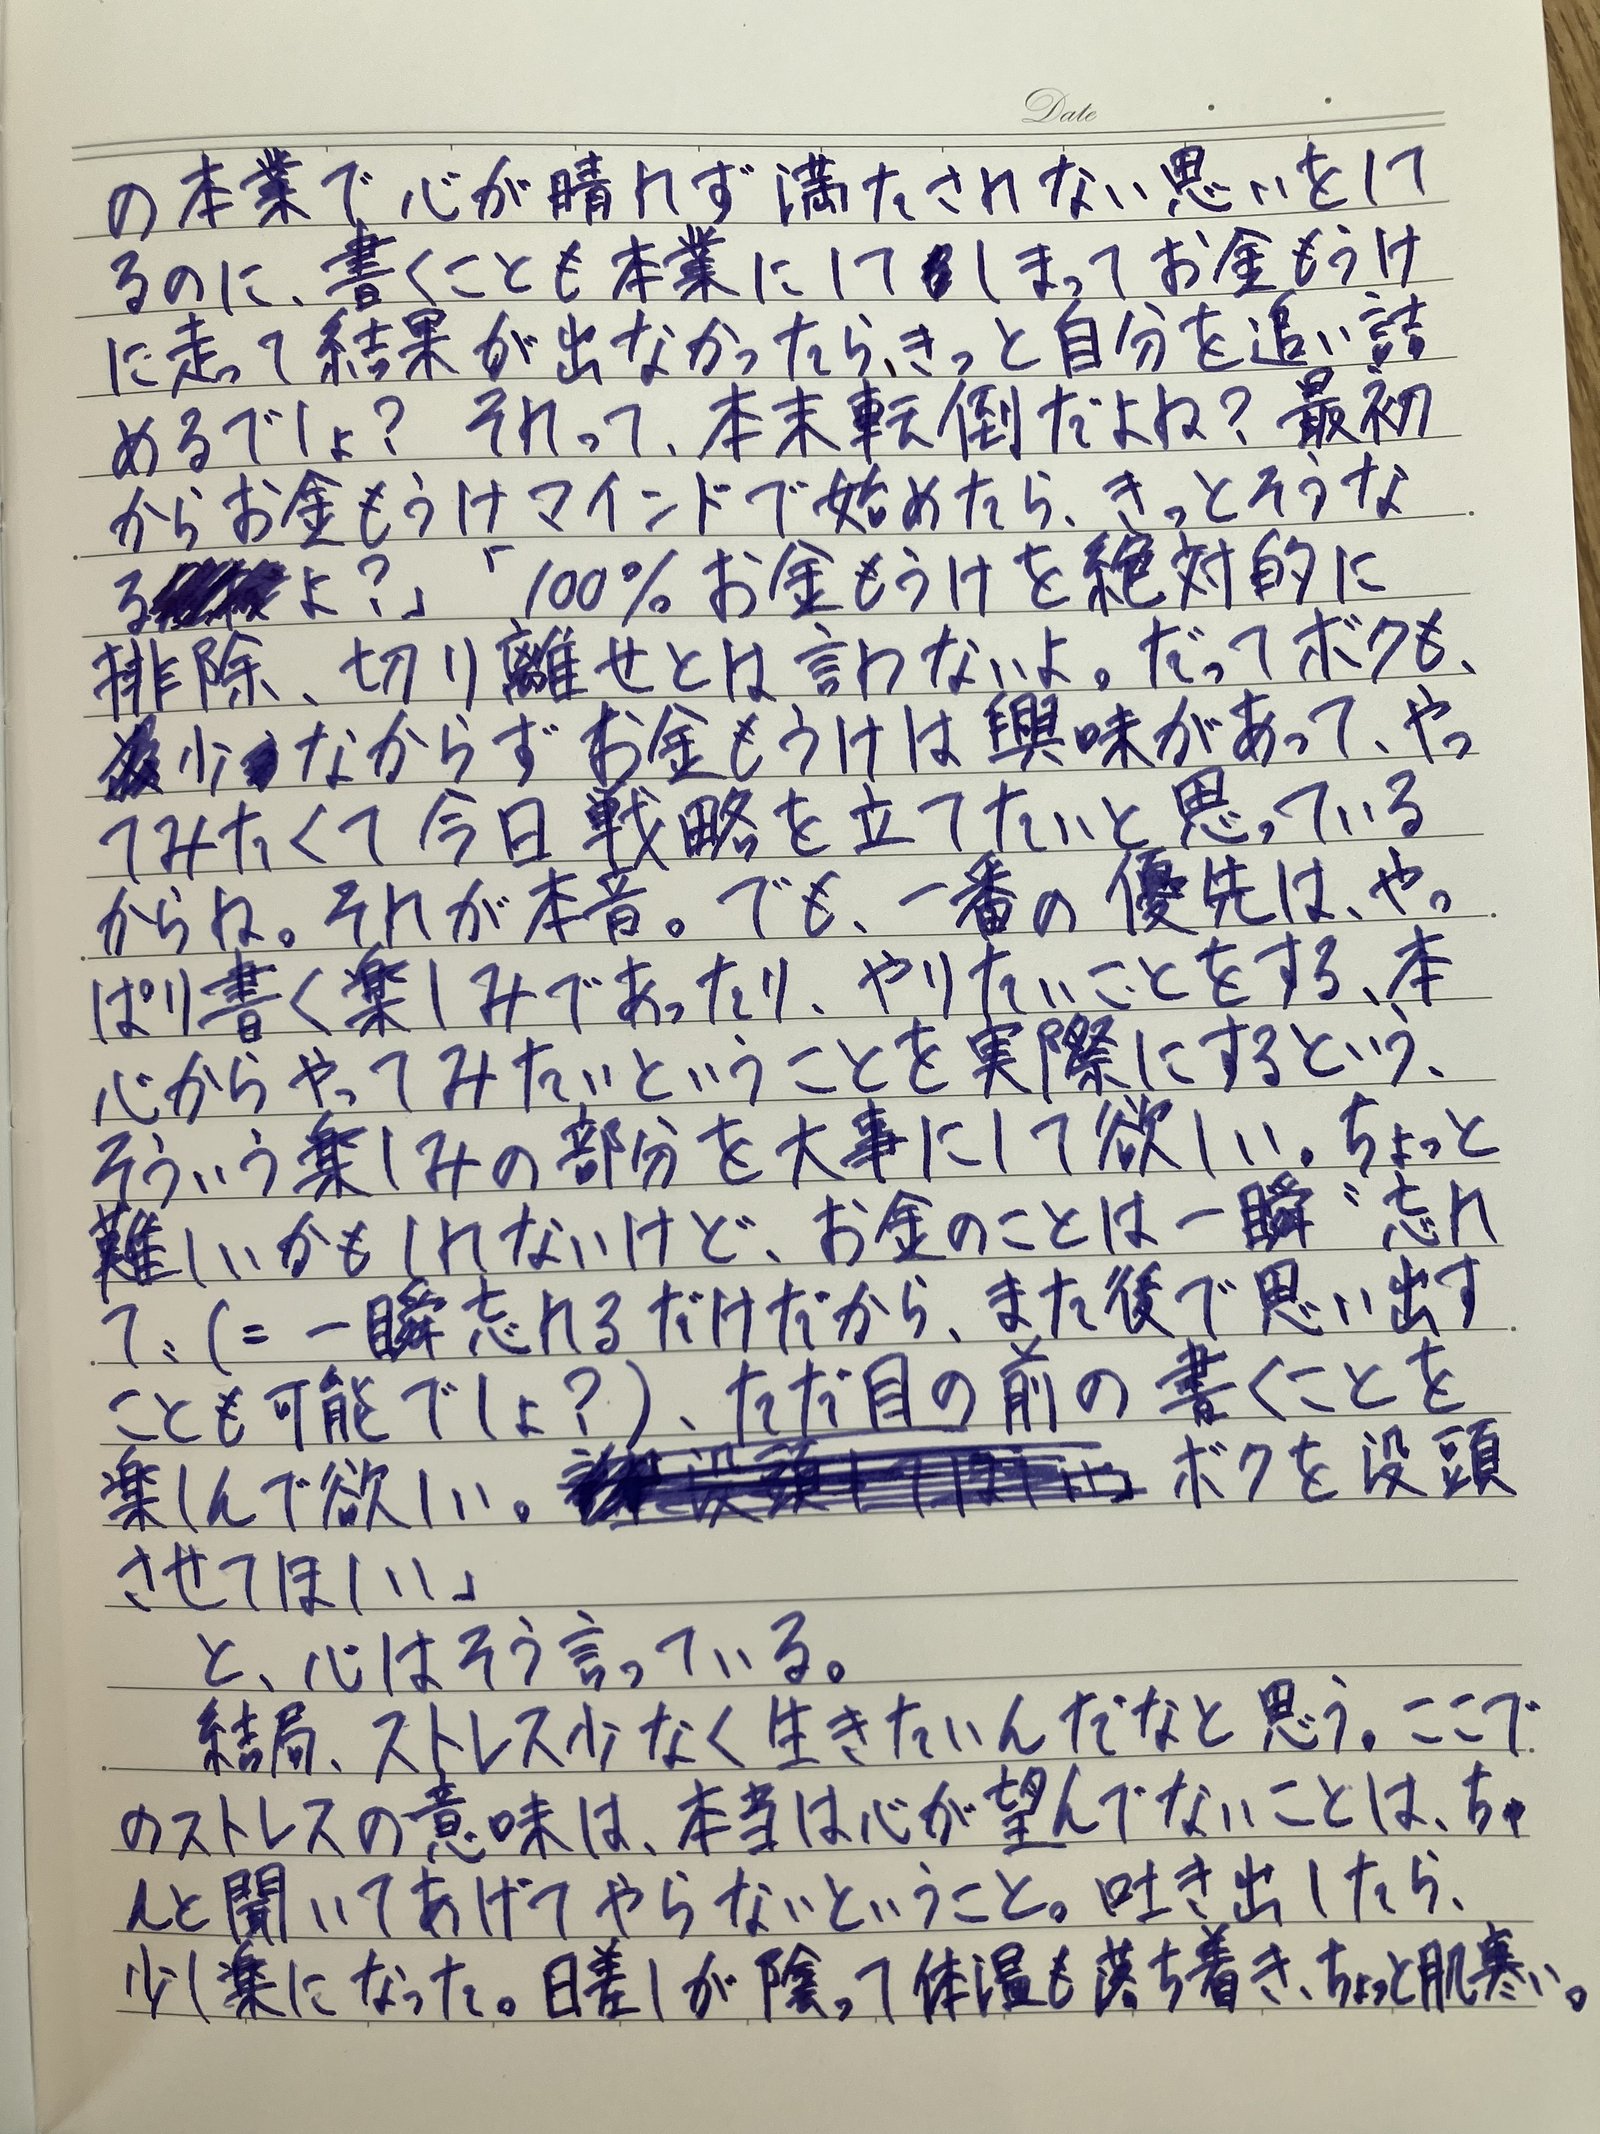 Date
の本業で心が晴れず満たされない思いをして
るのに、書くことも本業にしてしまってお金もうけ
に走って結果が出なかったら、きっと自分を追い詰
めるでしょ？ それって、本末転倒だよね？最初
からお金もうけマインドで始めたら、きっとそうな
るよ？」「100%お金もうけを絶対的に
排除、切り離せとは言わないよ。だってボクも、
少なからずお金もうけは興味があって、やっ
てみたくて今日戦略を立てたいと思っている
からね。それが本音。でも、一番の優先は、やっ
ぱり書く楽しみであったり、やりたいことをする、本
心からやってみたいということを実際にするという、
そういう楽しみの部分を大事にして欲しい。ちょっと
難しいかもしれないけど、お金のことは一瞬〝忘れ
て〟(=一瞬忘れるだけだから、また後で思い出す
ことも可能でしょ？)、ただ目の前の書くことを
楽しんで欲しい。ボクを没頭
させてほしい」
と、心はそう言っている。
結局、ストレス少なく生きたいんだなと思う。ここで
のストレスの意味は、本当は心が望んでないことは、ちゃ
んと聞いてあげてやらないということ。吐き出したら、
少し楽になった。日差しが陰って体温も落ち着き、ちょっと肌寒い。